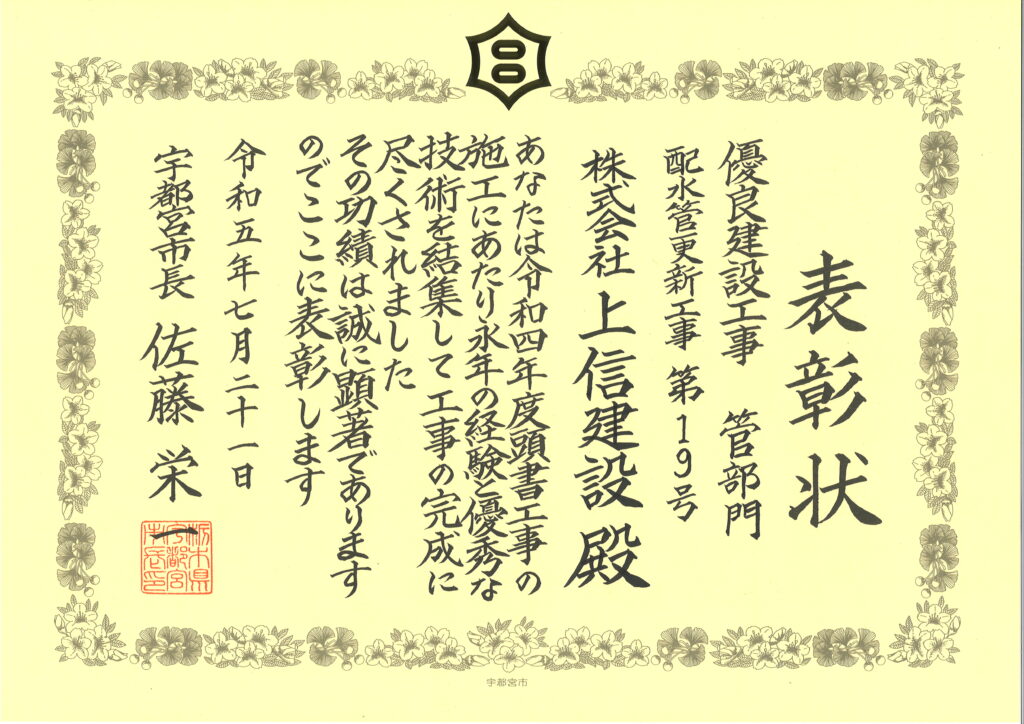 表彰状
優良建設工事 管部門
配水管更新工事 第19号
株式会社 上信建設 殿
あなたは令和四年度頭書工事の
施工にあたり永年の経験と優秀な
技術を結集して工事の完成に
尽くされました
その功績は誠に顕著であります
のでここに表彰します
令和五年七月二十一日
宇都宮市長 佐藤 栄一
栃木県
宇都宮
市長印
宇都宮市